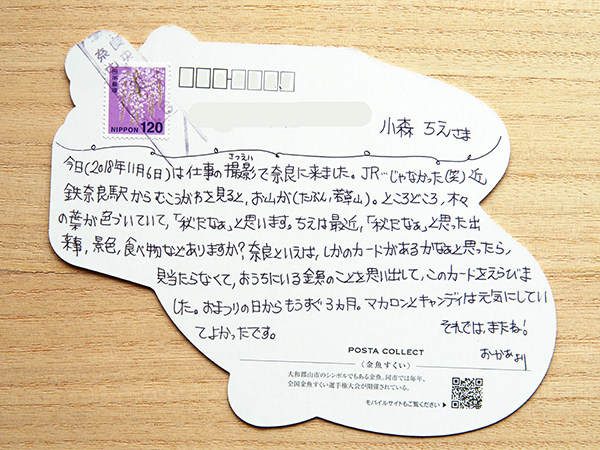 奈良中央
日本郵便
NIPPON 120
小森 ちえさま
さつえい
今日(2018年11月6日)は仕事の撮影で奈良に来ました。JR…じゃなかった(笑)近
鉄奈良駅からむこうがわを見ると、お山が(たぶん若草山)。ところどころ、木々
の葉が色づいていて、「秋だなぁ」と思います。ちえは最近、「秋だなぁ」と思った出
来事，景色，食べ物などありますか?奈良といえば、しかのカードがあるかなぁと思ったら，
見当たらなくて，おうちにいる金魚のことを思い出して、このカードをえらびま
した。おまつりの日からもうすぐ3ヵ月。マカロンとキャンディは元気にしてい
てよかったです。
それでは、またね!
おかあより
POSTA COLLECT
〈金魚すくい〉
大和郡山市のシンボルでもある金魚。同市では毎年、
全国金魚すくい選手権大会が開催されている。
モバイルサイトもご覧ください▶